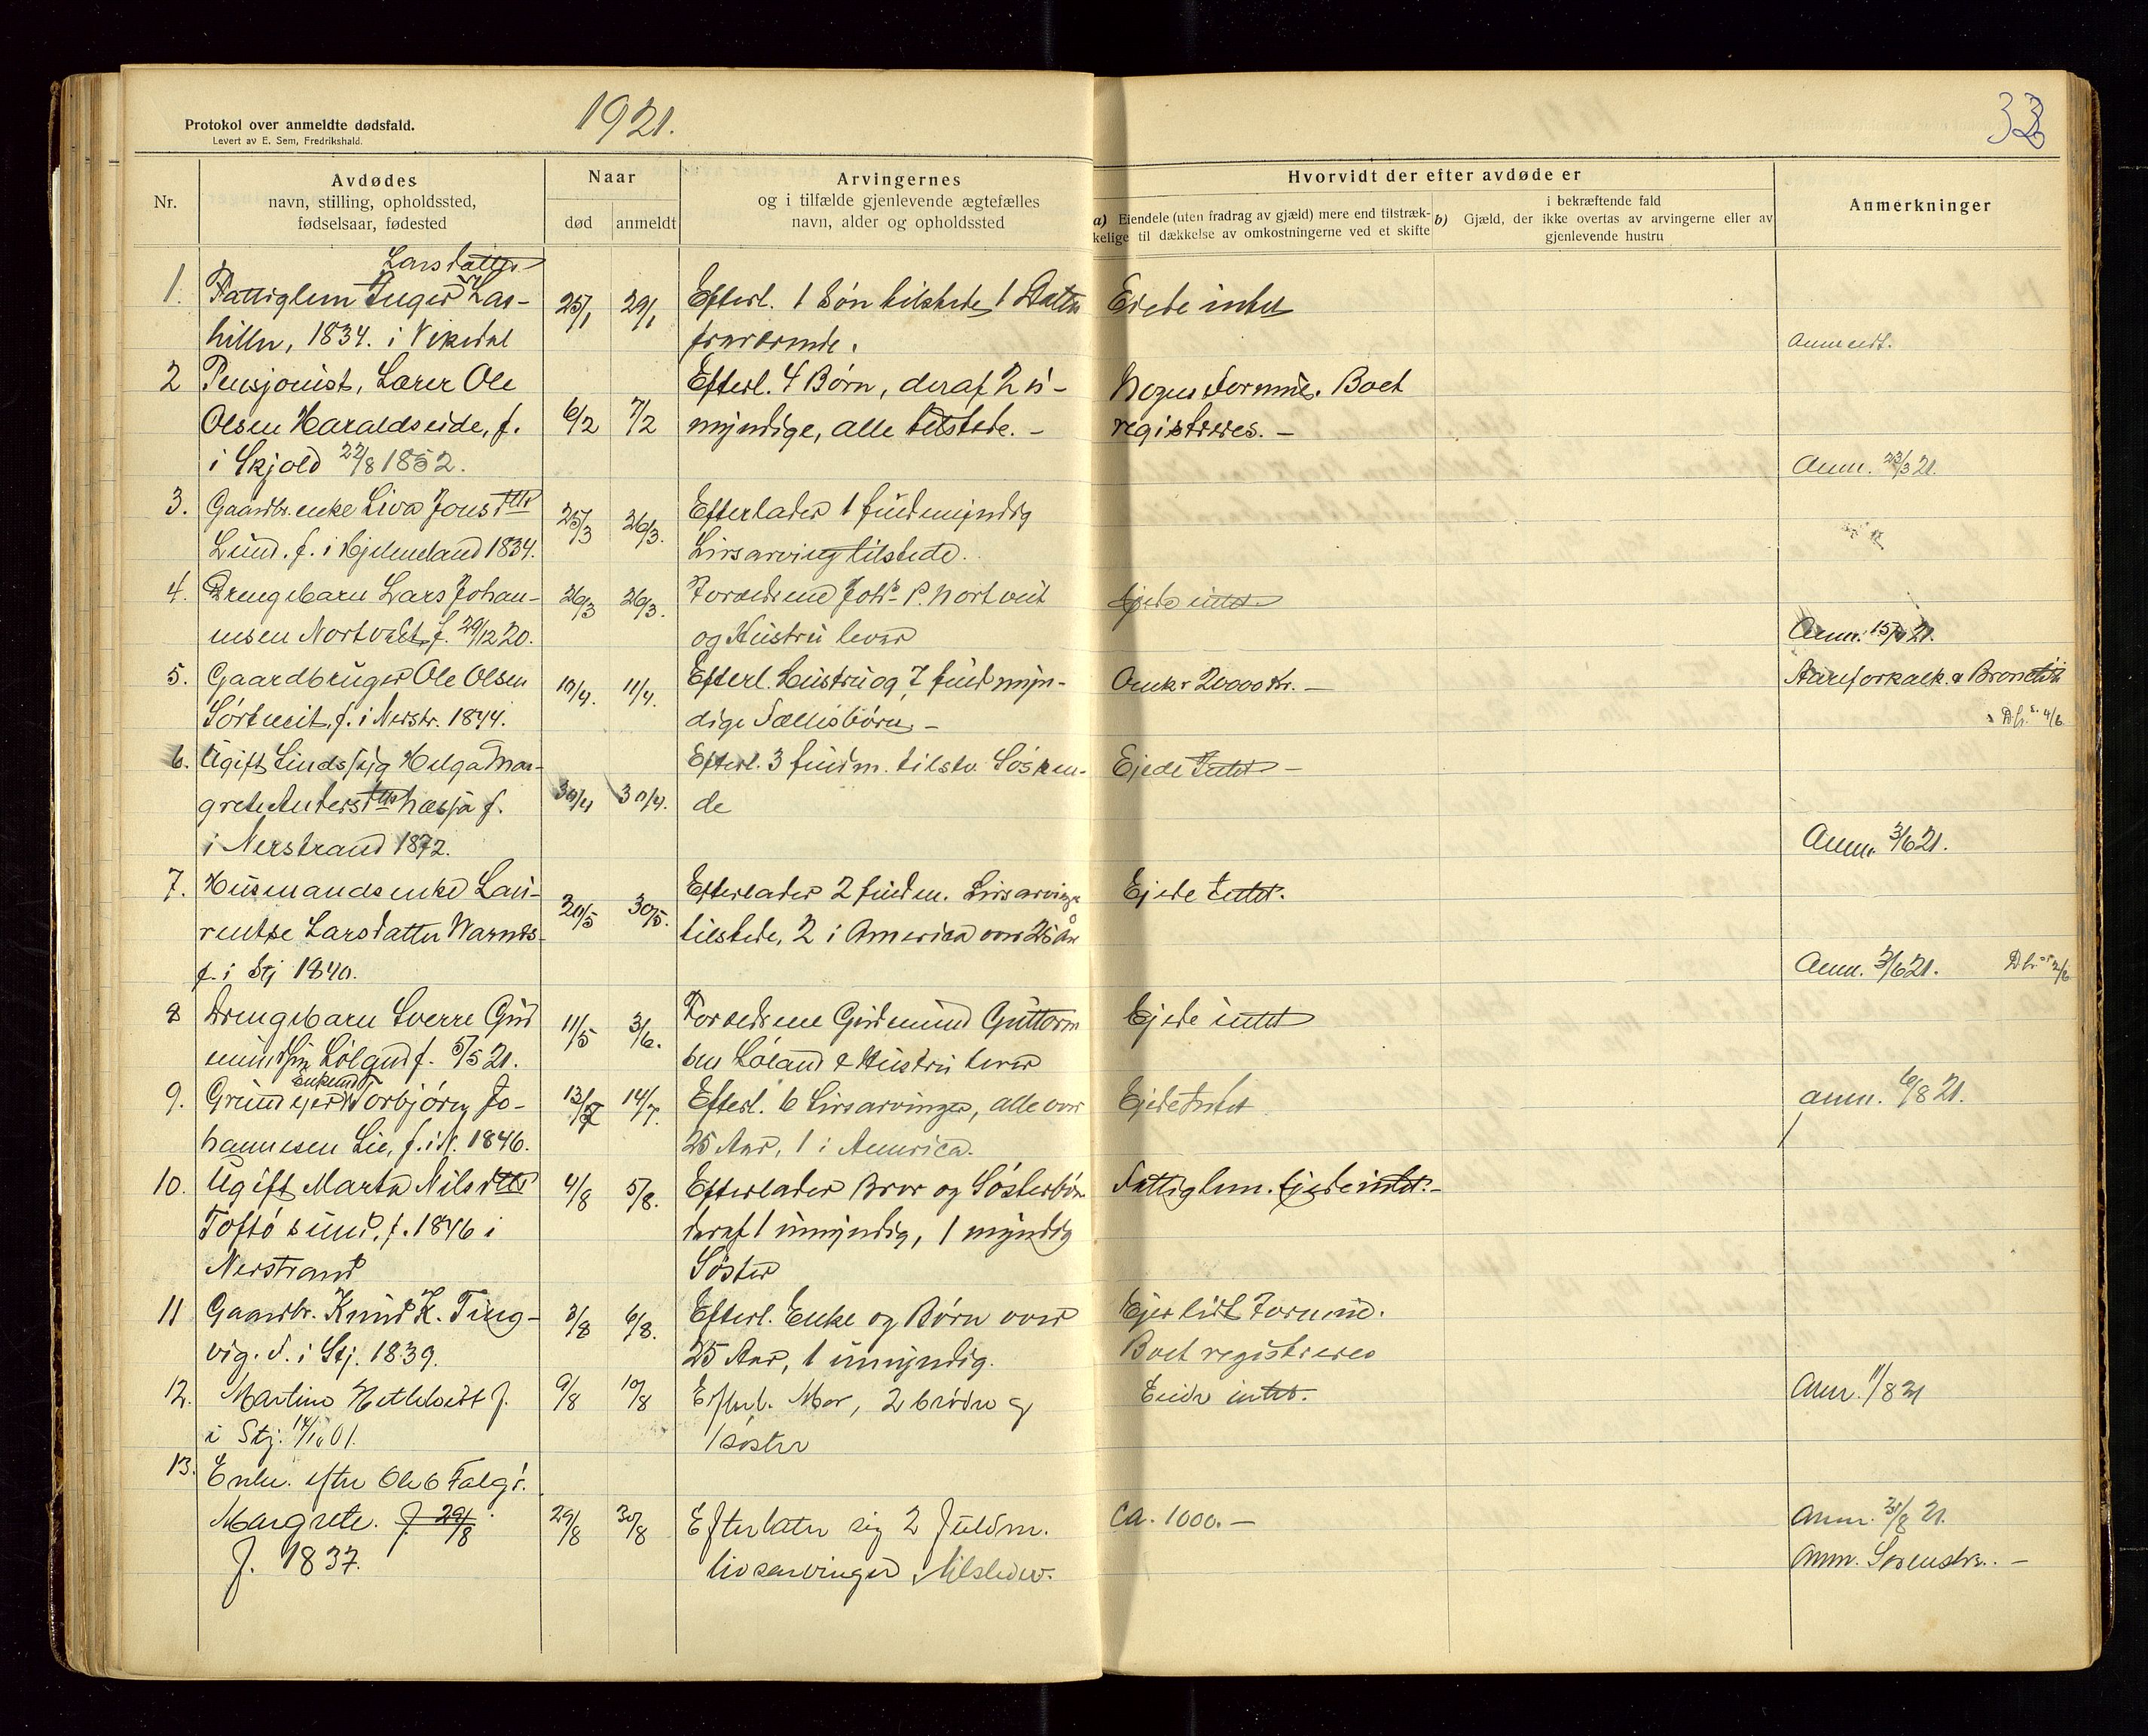 Protokol over anmeldte dødsfald.
Levert av E. Sem, Fredrikshald.
1921.
33
Nr.
Avdødes
navn, stilling, opholdssted,
fødselsaar, fødested
Naar
død
anmeldt
Arvingernes
og i tilfælde gjenlevende ægtefælles
navn, alder og opholdssted
Hvorvidt der efter avdøde er
a) Eiendele (uten fradrag av gjæld) mere end tilstræk-
kelige til dækkelse av omkostningerne ved et skifte
i bekræftende fald
b) Gjæld, der ikke overtas av arvingerne eller av
gjenlevende hustru
Anmerkninger
Larsdatter
1. Fattiglem Inger Las-
hillen, 1834. i Vikedal
25/1 29/1
Efterl. 1 Søn tilstede, 1 Datter
fraværende.
Eiede intet
Anmeldt.
2 Pensjonist, Lærer Ole
Olsen Haraldseide, f.
i Skjold 22/8 1852.
6/2 7/2
Efterl. 4 Børn, deraf 2 u-
myndige, alle tilstede. -
Nogen Formue. Boet
registreres. -
Anm. 23/3 21.
3. Gaardbr. enke Liva Jonsdttr
Lund. f. i Hjelmeland 1834.
25/3 26/3.
Efterlader 1 fuldmyndig
Livsarving tilstede.
4. Drengebarn Lars Johan-
nesen Nortveit, f. 29/12 20.
26/3 26/3.
Forældrene Johs. P. Nortveit
og Hustru lever
Ejede intet
Anm. 15/4 21.
5. Gaardbruger Ole Olsen
Sørtveit, f. i Nerstr. 1844.
10/4. 11/4.
Efterl. Hustru og 7 fuldmyn-
dige Fællesbørn. -
Omkr 20000 Kr. -
Aareforkalk. & Bronchit
4/6
6. Ugift Helga Mar-
grete Andersdttr Næsja f.
i Nerstrand 1872.
30/4 30/4.
Efterl. 3 fuldm. tilstv. Søsken-
de
Ejede Intet -
Anm. 3/6 21.
7. Husmandsenke Lau-
rentse Larsdatter
f. i Stj 1840.
20/5 30/5.
Efterlader 2 fuldm. Livsarvinge
tilstede, 2 i America over 25 År
Ejede Intet.
Anm. 3/6 21.
2/6
8 Drengebarn Sverre Gud
mundsen Løland f. 5/5 21.
11/5 3/6.
Forældrene Gudmund Guttorm
sen Løland & Hustru lever
Ejede intet
Enkemd
9. Grundejer Torbjørn Jo-
hannesen Lie, f. i N. 1846.
13/7 14/7.
Efterl. 6 Livsarvinger, alle over
25 Aar, 1 i America.
Ejede Intet
anm. 6/8 21.
10. Ugift Marta Nilsdttr
Toftøsund, f. 1846 i
Nerstrand
4/8 5/8.
Efterlader Bror og Søsterbørn
deraf 1 umyndig, 1 myndig
Søster
Fattiglem. Ejede intet. -
11 Gaardbr. Knud K. Ting-
vig. f. i Stj. 1839.
3/8 6/8.
Efterl. Enke og Børn over
25 Aar, 1 umyndig.
Ejer lidt Formue.
Boet registreres
12. Martine f.
i Stj. 01.
9/8 10/8
Efterl. Mor, 2 brødre og
1 søster
Eiede intet.
Anm. 11/8 21
13. Enke. efter Ole Falgi.
Margrete. f 29/8.
f. 1837.
29/8 30/8
Efterlater sig 2 fuldm.
livsarvinger, tilstede.
Ca. 1000. -
Anm. 31/8 21.
Anm. Sorenskr. -